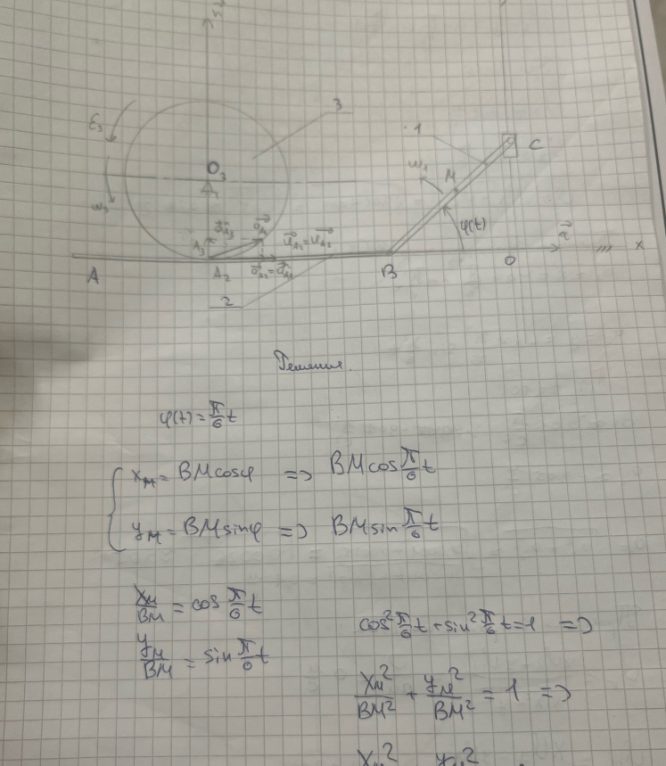 3
1
C
ε₃
O₃
M
ω₁
φ(t)
ω₃
A₃
x
A
A₂
B
O
2
Решение
φ(t) = π/6 t
x_M = BM cosφ => BM cos π/6 t
y_M = BM sinφ => BM sin π/6 t
x_M/BM = cos π/6 t
y_M/BM = sin π/6 t
cos² π/6 t + sin² π/6 t = 1 =>
x_M²/BM² + y_M²/BM² = 1 =>
x_M² y_M²